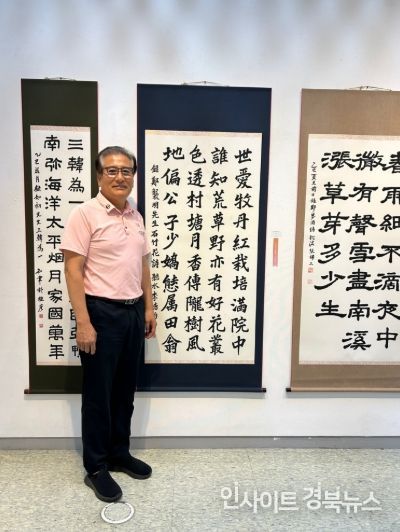 雨細不滴夜中
微有聲雪盡南溪
漲草芽多少生
世愛牧丹紅栽培滿院中
誰知荒草野亦有好花叢
色透村塘月香傳隴樹風
地偏公子少嬌態属田翁
先生石竹花詩
三韓為一
鴨
南弥海洋太平烟月家國萬年
인사이트 경북뉴스